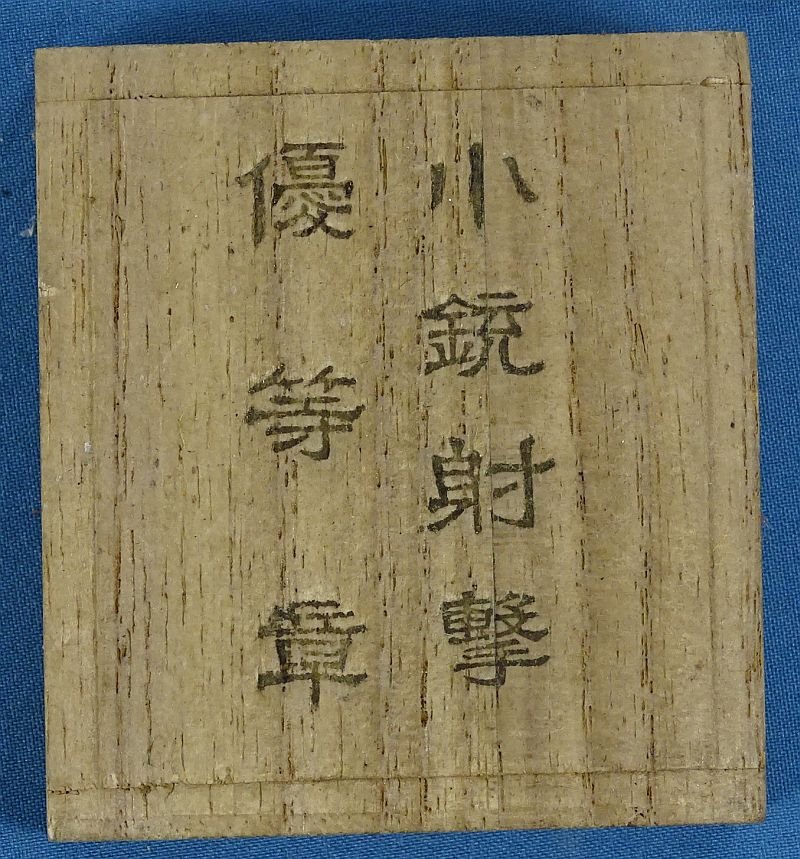 小銃射撃
優等章